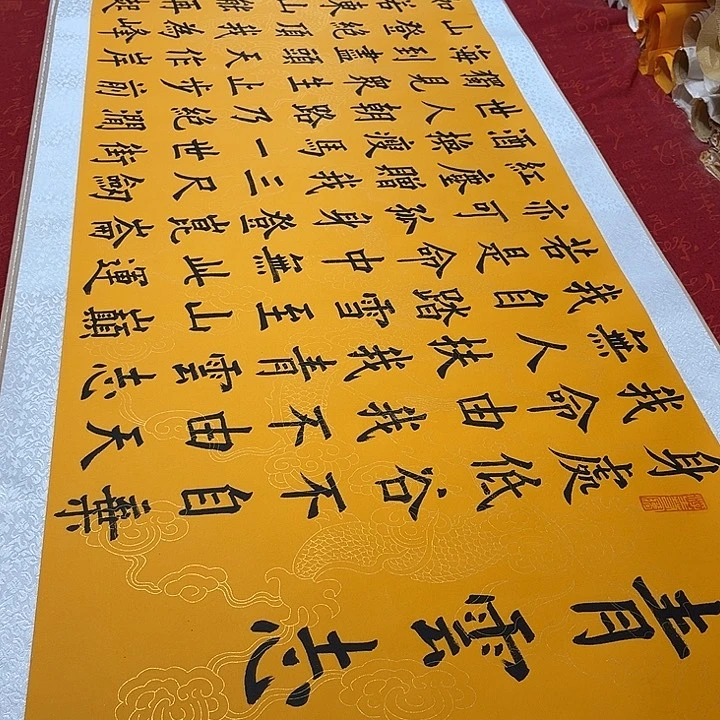 青雲志
身處低谷不自棄
我命由我不由天
無人扶我青雲志
我自踏雪至山巔
若是命中無此運
亦可孤身登崑崙
紅塵贈我三尺劍
酒瘦馬一世街
世人朝路乃絕澗
獨見眾生止步前
海到盡頭天作岸
山登絕頂我為峰
如若東山能再